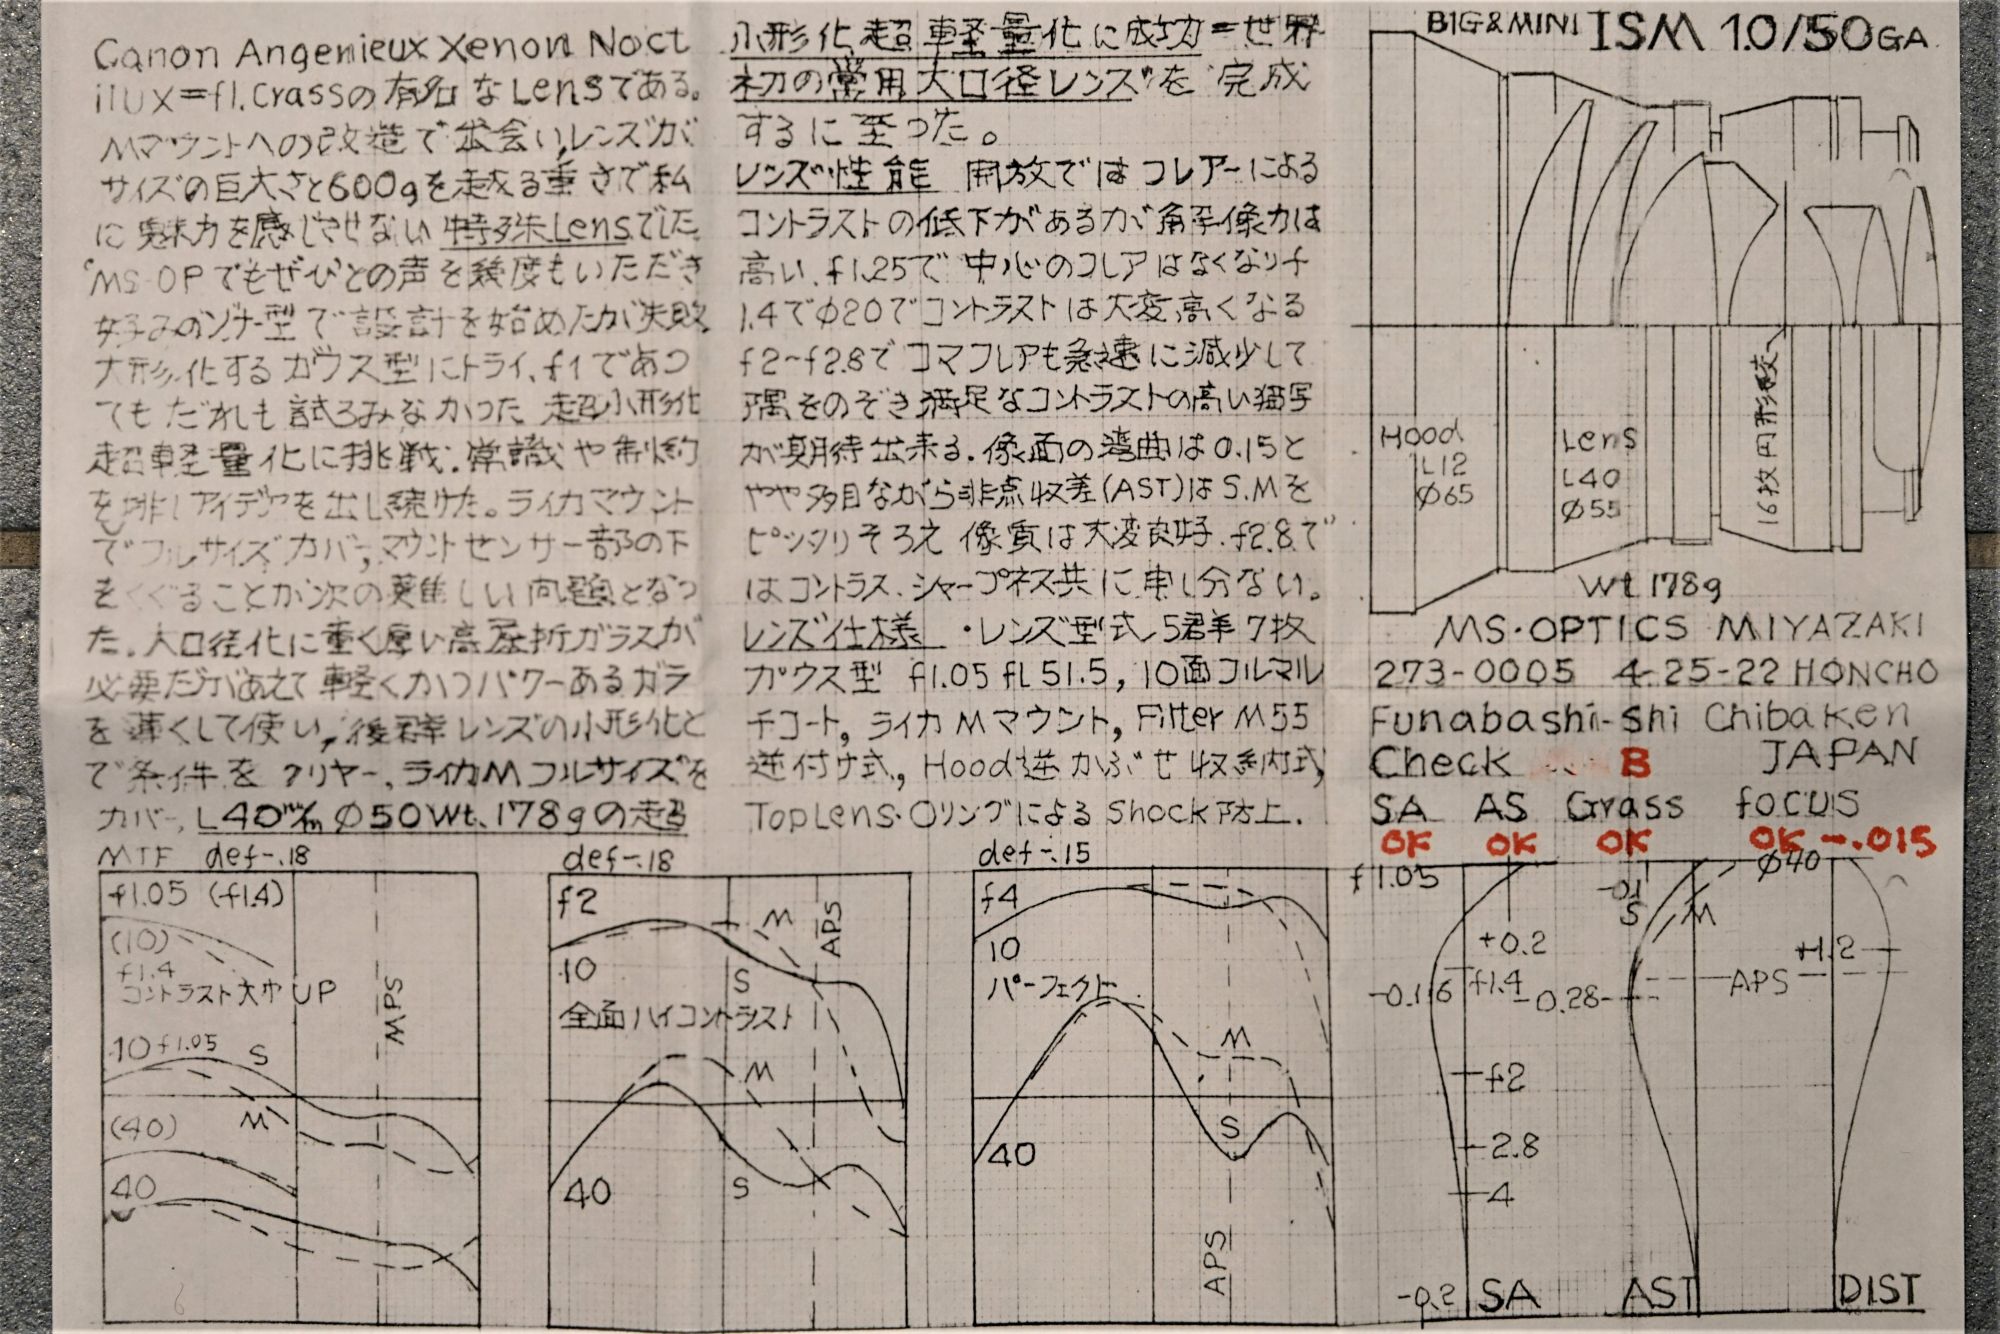 Canon Angenieux Xenon Noct
ilux=f1.Crassの有名なLensである。
Mマウントへの改造で出会い,レンズが
サイズの巨大さと600gを越る重さで私
に魅力を感じさせない特殊Lensでした
MS-OPでもぜひとの声を幾度もいただき
好みのゾナー型で設計を始めたが失敗
大形化するガウス型にトライ、f1であっ
てもだれも試ろみなかった超小形化
超軽量化に挑戦.常識や制約
を排しアイデアを出し続けた。ライカマウント
でフルサイズカバー,マウントセンサー部の下
をくぐることが次の難しい問題となっ
た.大口径化に重く厚い高屈折ガラスが
必要だがあえて軽くかつパワーあるガラ
を薄くして使い,後群レンズの小形化と
で条件をクリヤー.ライカMフルサイズを
カバー.L40m/m φ50Wt.178gの超
小形化超軽量化に成功=世界
初の常用大口径レンズを完成
するに至った。
レンズ性能 開放ではフレアーによる
コントラストの低下があるが解像力は
高い.f1.25で中心のフレアはなくなりf
1.4でφ20でコントラストは大変高くなる
f2~f2.8でコマフレアも急速に減少して
隅をのぞき満足なコントラストの高い描写
が期待出来る.像面の湾曲は0.15と
やや多目ながら非点収差(AST)はS.Mを
ピッタリそろえ像質は大変良好.f2.8で
はコントラス.シャープネス共に申し分ない。
レンズ仕様 ・レンズ型式5群7枚
ガウス型 f1.05 fL51.5, 10面フルマル
チコート, ライカMマウント, Filter M55
逆付け式, Hood逆かぶせ収納式,
TopLens・Oリングによる Shock防止.
BIG&MINI ISM 1.0/50GA.
Hood
L12
φ65
Lens
L40
φ55
16枚円形絞
Wt 178g
MS・OPTICS MIYAZAKI
273-0005 4-25-22 HONCHO
Funabashi-shi Chibaken
Check B JAPAN
SA AS Grass focus
OK OK OK OK -.015
MTF def-.18
f1.05 (f1.4)
(10)
f1.4
コントラスト大巾UP
10 f1.05 S
M
(40)
40
MPS
def-.18
f2
M
APS
10
S
全面ハイコントラスト
M
40
S
def-.15
f4
10
パーフェクト
M
S
40
APS
f1.05
+0.2
-0.16
f1.4
f2
2.8
4
-0.2
SA
-0.1
S
M
-0.28
APS
AST
φ40
+1.2
DIST